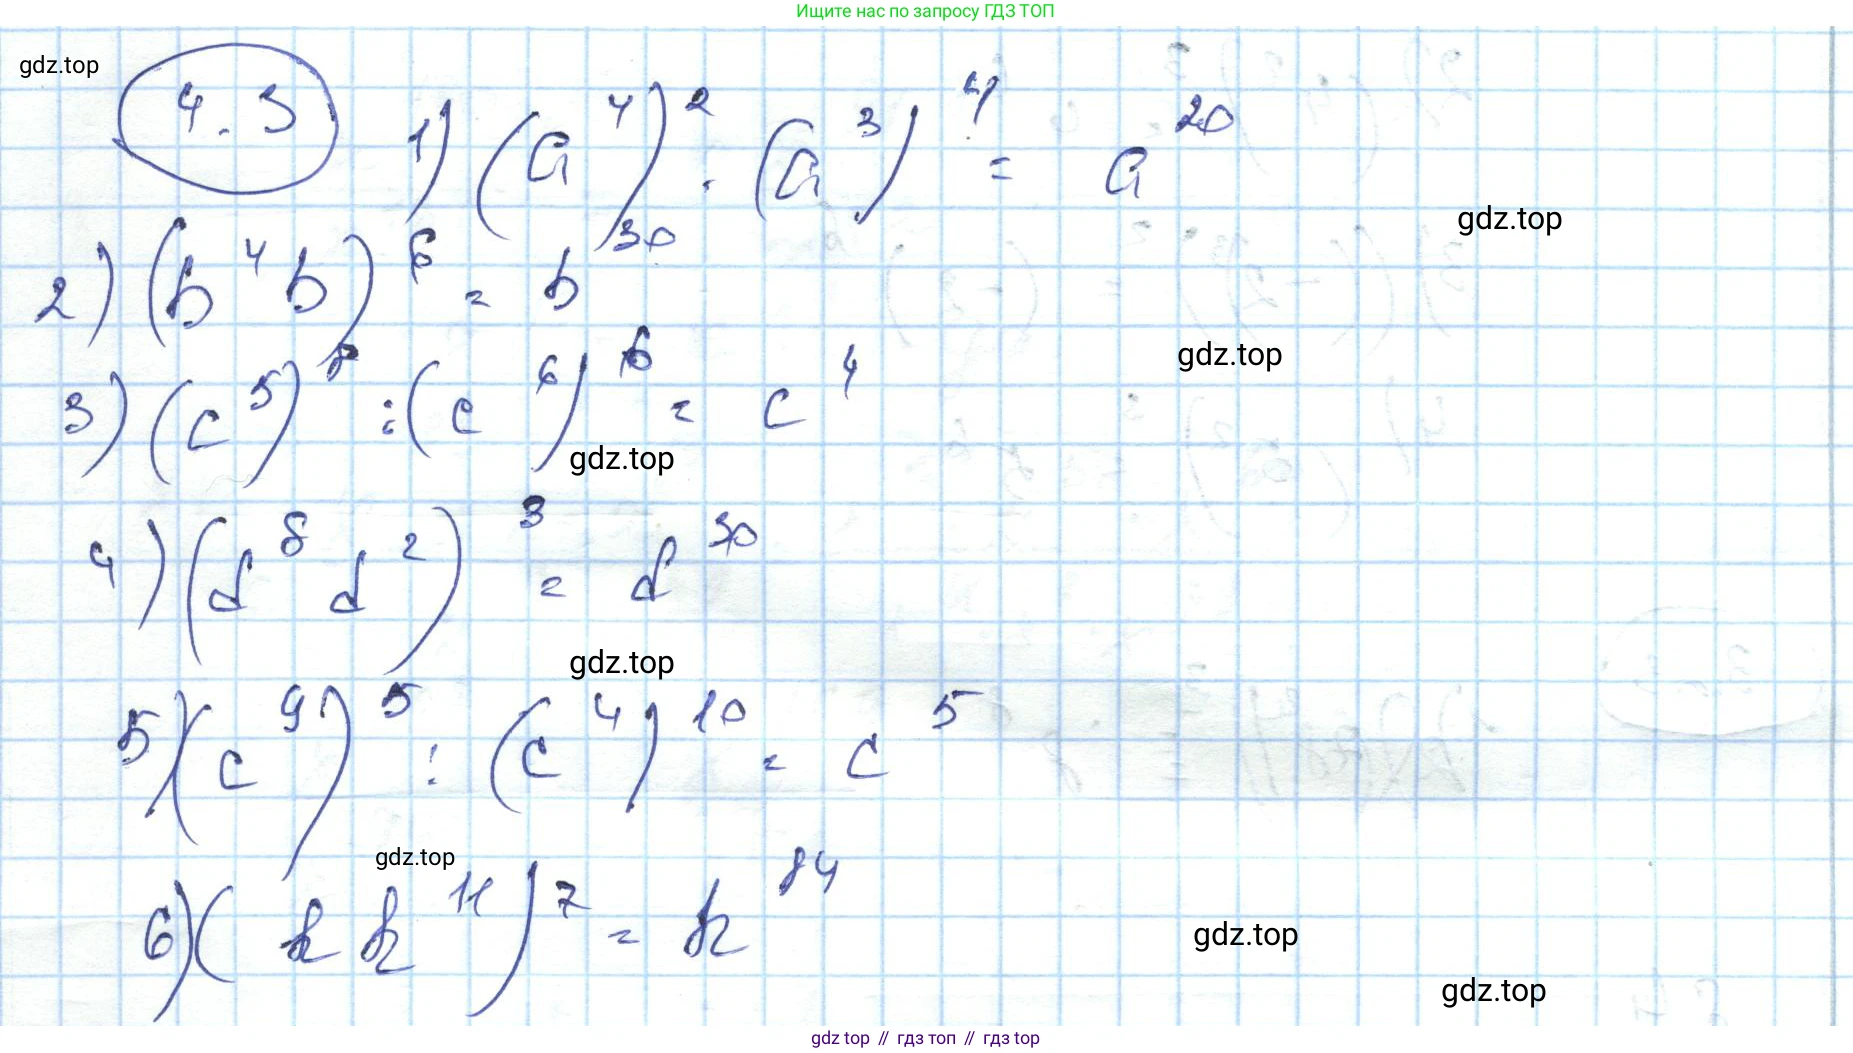 Ищите нас по запросу ГДЗ ТОП
gdz.top
4.3 1) (a⁴)² · (a³)⁴ = a²⁰
gdz.top
2) (b⁴b)⁶ = b³⁰
gdz.top
3) (c⁵)⁸ : (c⁶)⁶ = c⁴
gdz.top
4) (d⁸ d²)³ = d³⁰
gdz.top
5) (c⁹)⁵ : (c⁴)¹⁰ = c⁵
gdz.top
6) (k k¹¹)⁷ = k⁸⁴
gdz.top
gdz.top
gdz top // гдз топ // гдз top